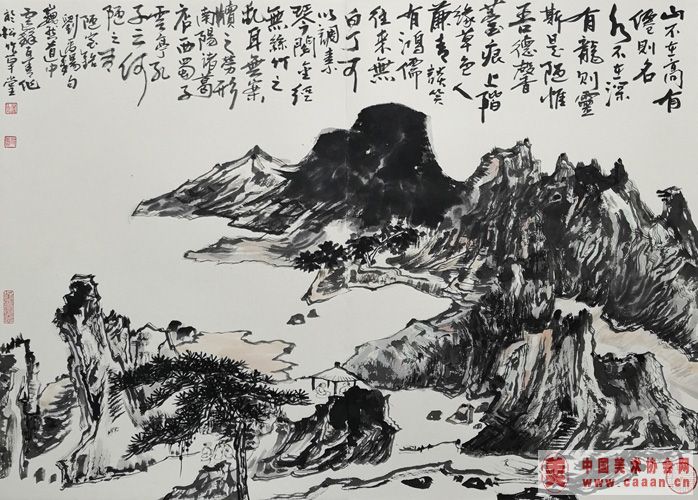 山不在高有
僊则名
水不在深
有龍则靈
斯是陋惟
吾德馨
苔痕上階
緑草色入
簾青談笑
有鴻儒
往来無
白丁可
以調素
琴閲金經
無絲竹之
乱耳無案
牘之勞形
南陽諸葛
庐西蜀子
雲亭孔
子云何
陋之有
陋室銘
劉禹錫句
美
中国美术协会网
www.caaan.cn